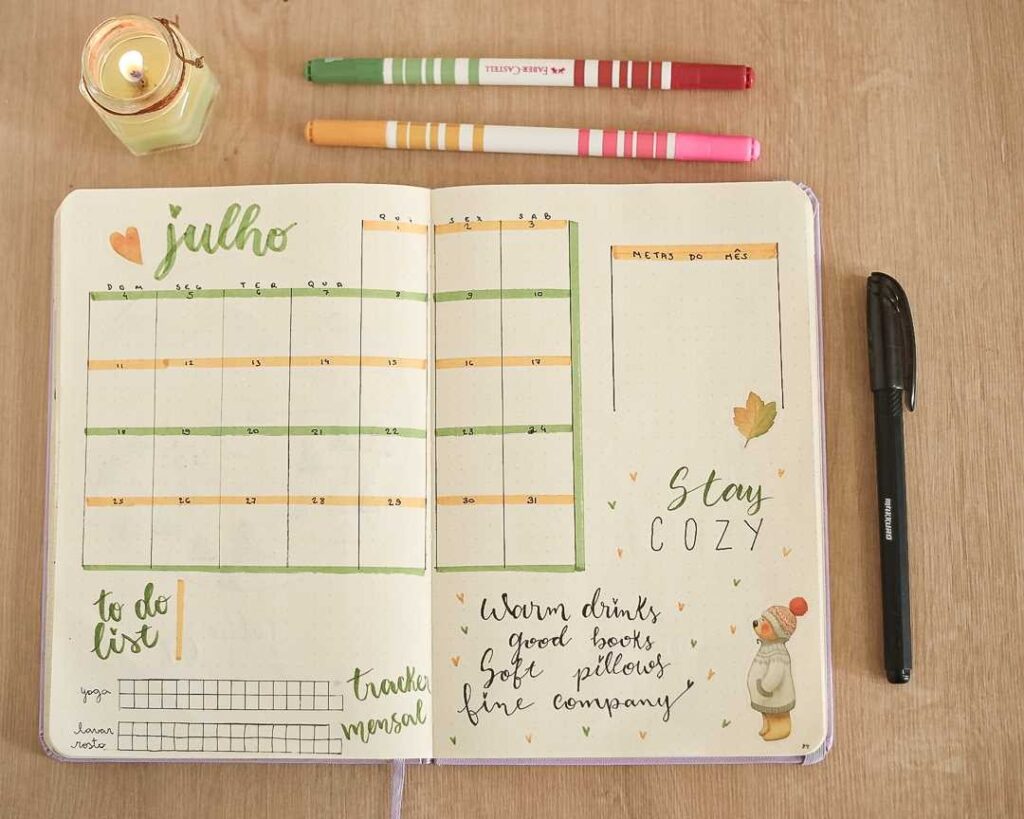 FABER-CASTELL
julho
QUI SEX SAB
1 2 3
DOM SEG TER QUA
4 5 6 7 8 9 10
11 12 13 14 15 16 17
18 19 20 21 22 23 24
25 26 27 28 29 30 31
METAS DO MÊS
Stay
COZY
to do
list
Warm drinks
good books
Soft pillows
fine company
tracker
mensal
yoga
lavar
rosto